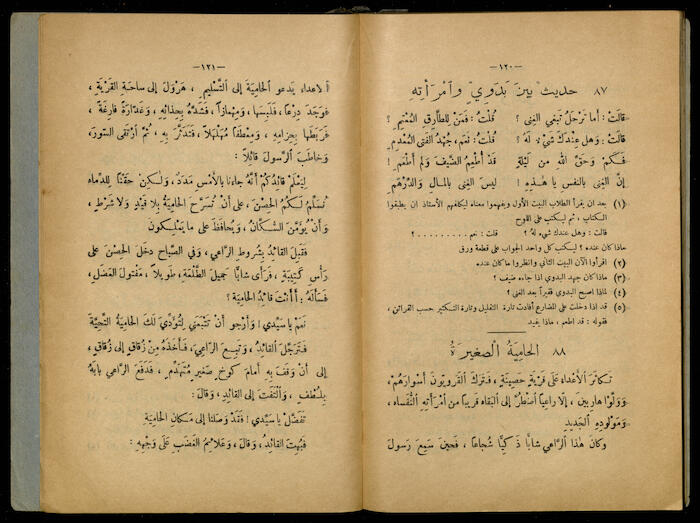 —١٢٠—
٨٧ حديث بين بدوي وامرأته
قالت : أما ترحل تبغي الغنى ؟ قلت : فمن للطارق المعتم ؟
قالت : وهل عندك شيء له ؟ قلت : نعم ، جهد الفتى المعدم
فكم وحق الله من ليلة قد أطعم الضيف ولم أطعم !
إن الغنى بالنفس يا هذه ! ليس الغنى بالمال والدرهم
(١) بعد ان يقرأ الطلاب البيت الأول ويفهموا معناه ليكلفهم الأستاذ ان يطبقوا
الكتاب ، ثم ليكتب على اللوح
قالت : وهل عندك شيء له ؟ قلت : نعم . . . . . . . . . ؟
ماذا كان عنده ؟ ليكتب كل واحد الجواب على قطعة ورق
(٢) اقرأوا الآن البيت الثاني وانظروا ما كان عنده
(٣) ماذا كان جهد البدوي اذا جاءه ضيف ؟
(٤) لماذا اصبح البدوي فقيراً بعد الغنى ؟
(٥) قد اذا دخلت على المضارع أفادت تارة التقليل وتارة التكثير حسب القرائن ،
فقوله : قد اطعم ، ماذا يفيد
٨٨ الحامية الصغيرة
تكاثر الأعداء على قرية حصينة ، فترك القرويون أسوارهم ،
وولوا هاربين ، إلا راعيا اضطر إلى البقاء قريبا من امرأته النفساء ،
ومولوده الجديد
وكان هذا الراعي شابا ذكيا شجاعا ، فحين سمع رسول
—١٢١—
الاعداء يدعو الحامية إلى التسليم ، هرول إلى ساحة القرية ،
فوجد درعاً ، فلبسها ، ومهمازاً ، فشده بحذائه ، وغدارة فارغة ،
فربطها بحزامه ، ومعطفاً مهلهلاً ، فتدثر به ، ثم ارتقى السور ،
وخاطب الرسول قائلاً :
ليعلم قائدكم أنه جاءنا بالأمس مدد ، ولكن حقناً للدماء
نسلم لكم الحصن ، على أن تسرح الحامية بلا قيد ولا شرط ،
وأن يؤمن السكان ، ويحافظ على ما يملكون
فقبل القائد بشروط الراعي ، وفي الصباح دخل الحصن على
رأس كتيبة ، فرأى شابا جميل الطلعة ، طويلاً ، مفتول العضل ،
فسأله : أأنت قائد الحامية ؟
نعم يا سيدي ! وأرجو أن تتبعني لتؤدي لك الحامية التحية
فترجل القائد ، وتبع الراعي ، فأخذه من زقاق إلى زقاق ،
إلى أن وقف به أمام كوخ صغير متهدم ، فدفع الراعي بابه
بلطف ، والتفت إلى القائد ، وقال :
تفضل يا سيدي ! فقد وصلنا إلى مكان الحامية
فبهت القائد ، وقال ، وعلائم الغضب على وجهه :